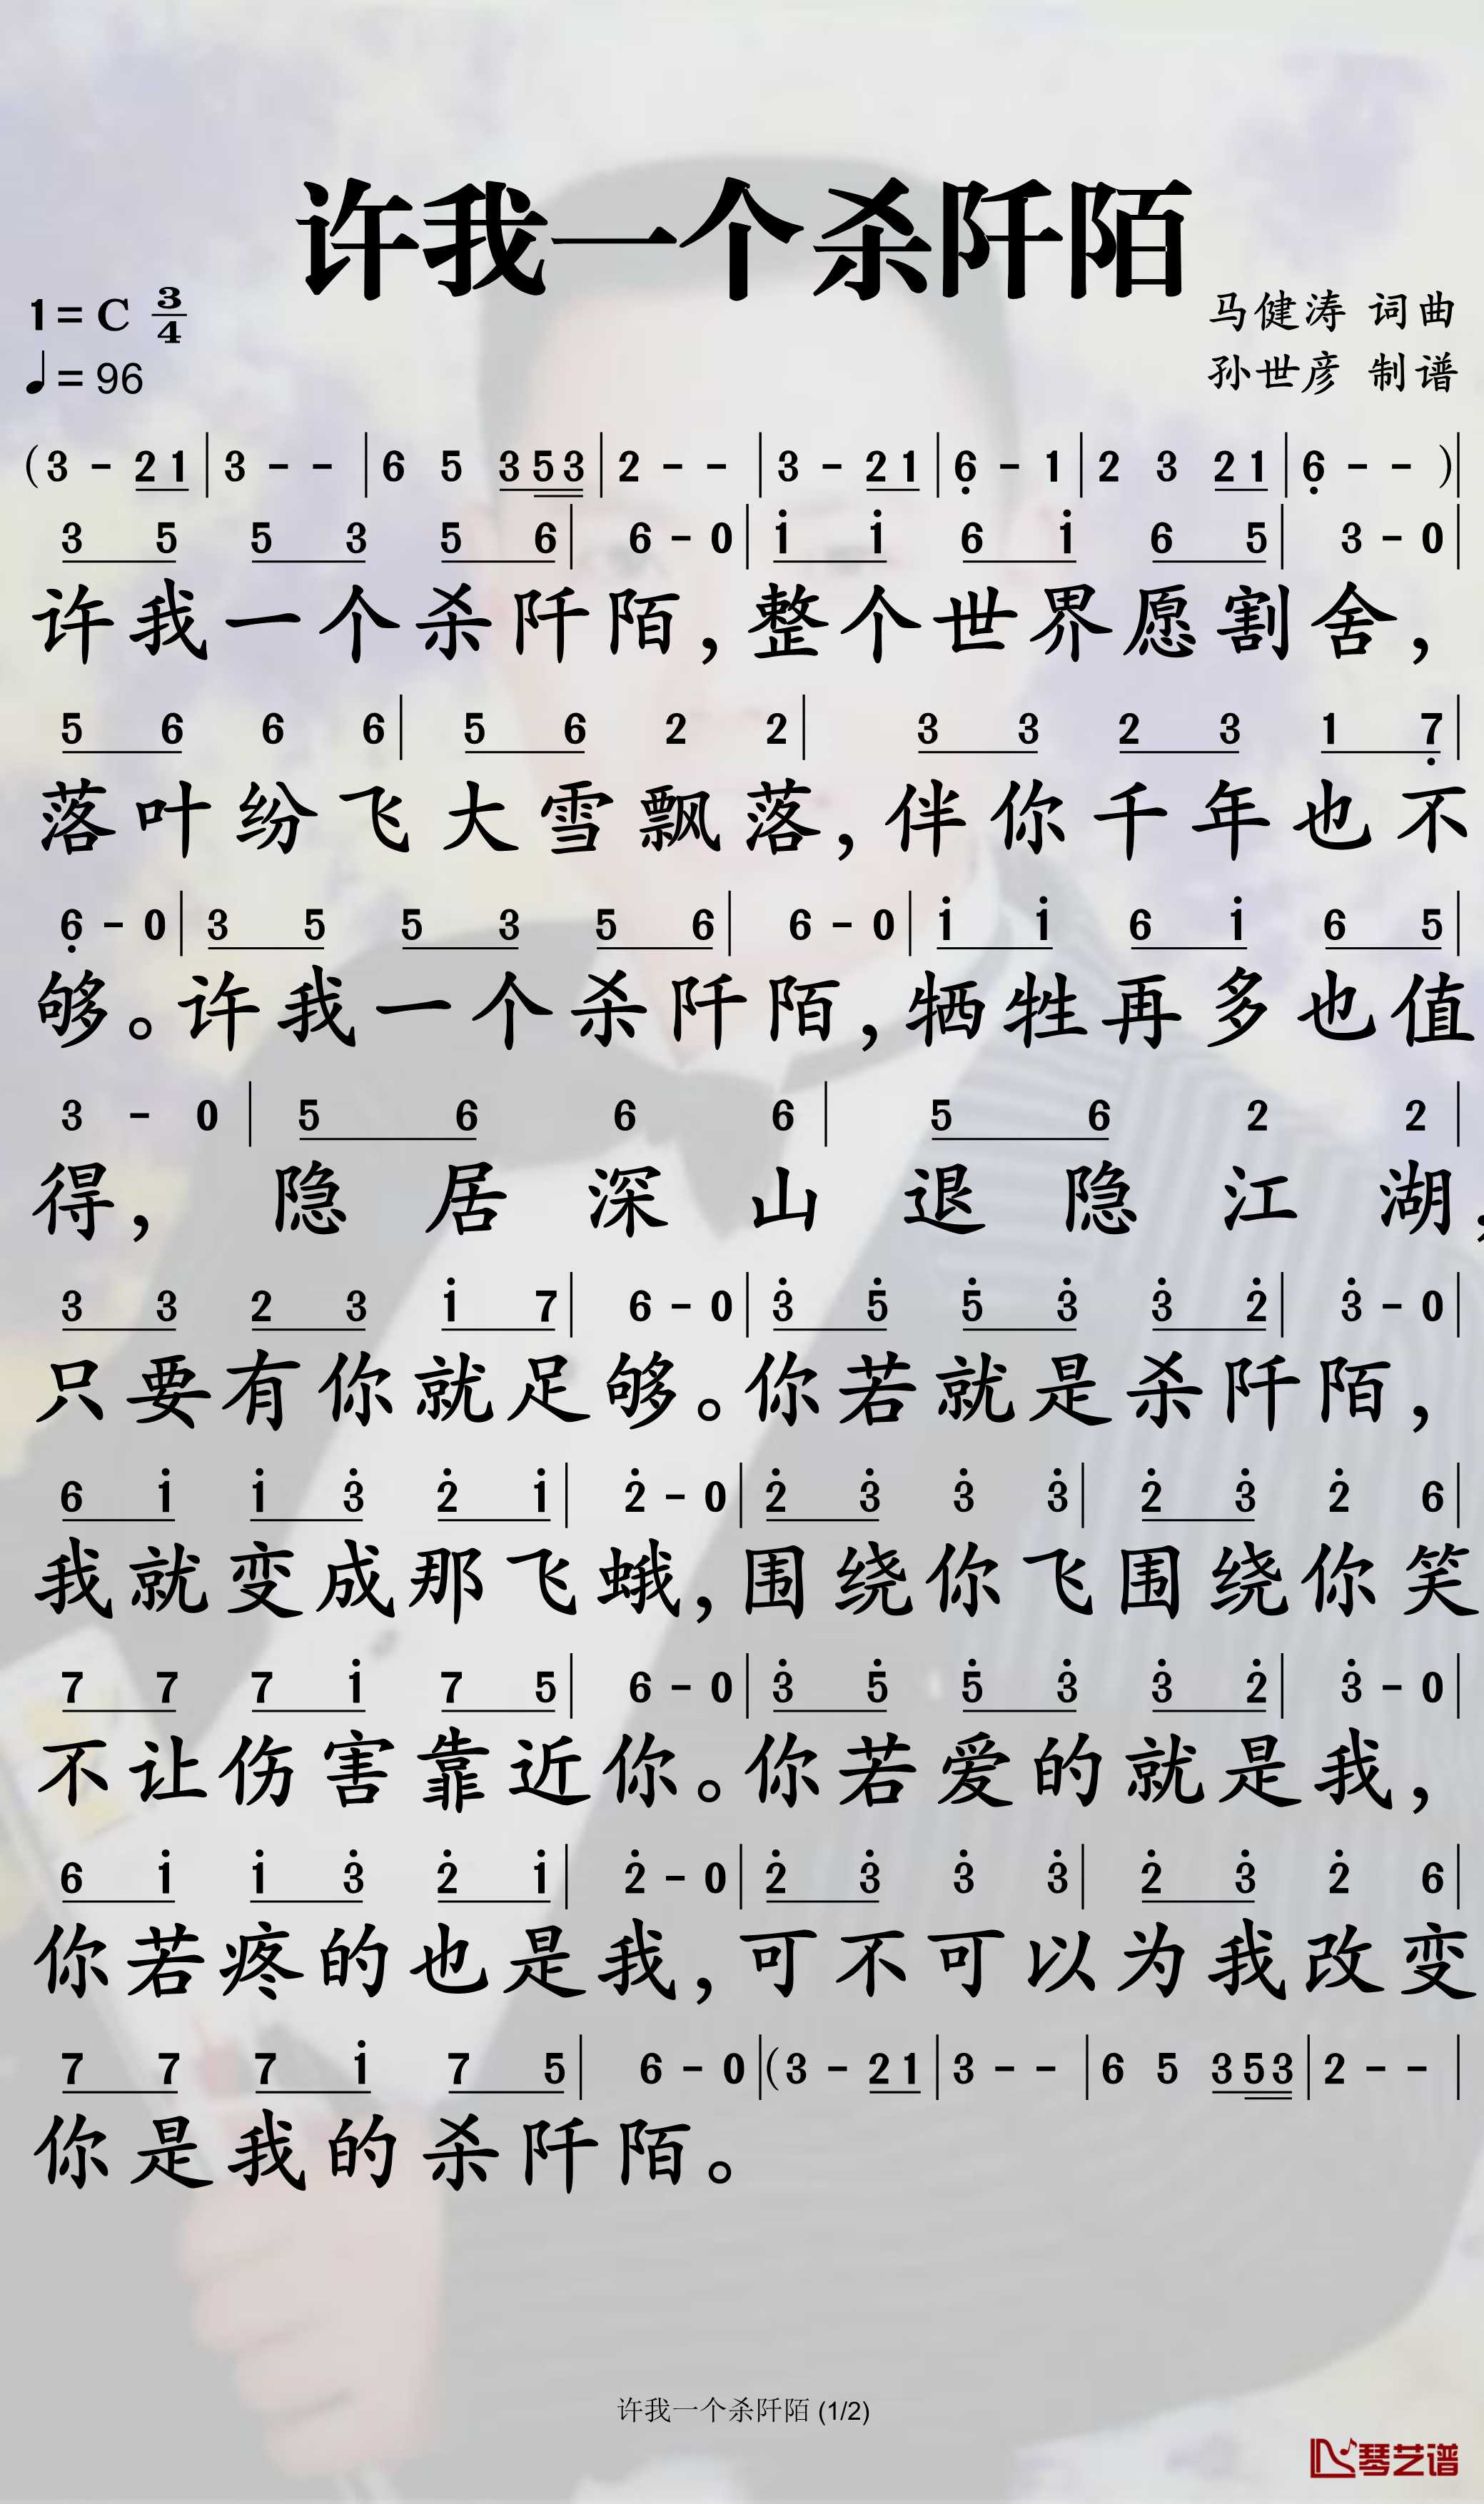 许我一个杀阡陌
1=C 3/4
马健涛 词曲
♩=96
孙世彦 制谱
(3 - 2 1 | 3 - - | 6 5 3 5 3 | 2 - - | 3 - 2 1 | 6̣ - 1 | 2 3 2 1 | 6̣ - - )|
3 5 5 3 5 6 | 6 - 0 | 1̇ 1̇ 6 1̇ 6 5 | 3 - 0 |
许我一个杀阡陌，整个世界愿割舍，
5 6 6 6 | 5 6 2 2 | 3 3 2 3 1 7̣ |
落叶纷飞大雪飘落，伴你千年也不
6̣ - 0 | 3 5 5 3 5 6 | 6 - 0 | 1̇ 1̇ 6 1̇ 6 5 |
够。许我一个杀阡陌，牺牲再多也值
3 - 0 | 5 6 6 6 | 5 6 2 2 |
得，隐居深山退隐江湖，
3 3 2 3 1̇ 7 | 6 - 0 | 3̇ 5̇ 5̇ 3̇ 3̇ 2̇ | 3̇ - 0 |
只要有你就足够。你若就是杀阡陌，
6 1̇ 1̇ 3̇ 2̇ 1̇ | 2̇ - 0 | 2̇ 3̇ 3̇ 3̇ | 2̇ 3̇ 2̇ 6 |
我就变成那飞蛾，围绕你飞围绕你笑
7 7 7 1̇ 7 5 | 6 - 0 | 3̇ 5̇ 5̇ 3̇ 3̇ 2̇ | 3̇ - 0 |
不让伤害靠近你。你若爱的就是我，
6 1̇ 1̇ 3̇ 2̇ 1̇ | 2̇ - 0 | 2̇ 3̇ 3̇ 3̇ | 2̇ 3̇ 2̇ 6 |
你若疼的也是我，可不可以为我改变
7 7 7 1̇ 7 5 | 6 - 0 |(3 - 2 1 | 3 - - | 6 5 3 5 3 | 2 - - |
你是我的杀阡陌。
许我一个杀阡陌 (1/2)
琴艺谱